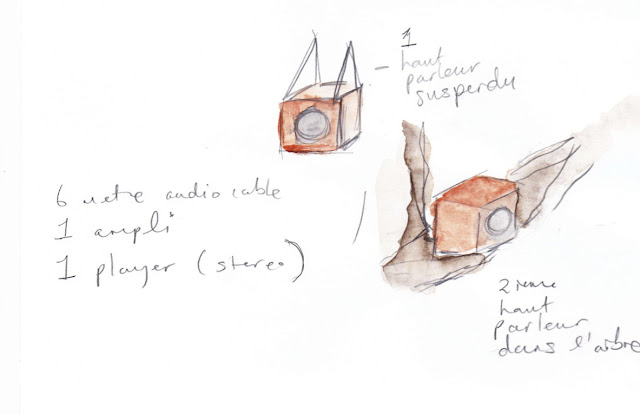 1
haut
parleur
suspendu
6 metre audio cable
1 ampli
1 player (stereo)
2ieme
haut
parleur
dans l'arbre